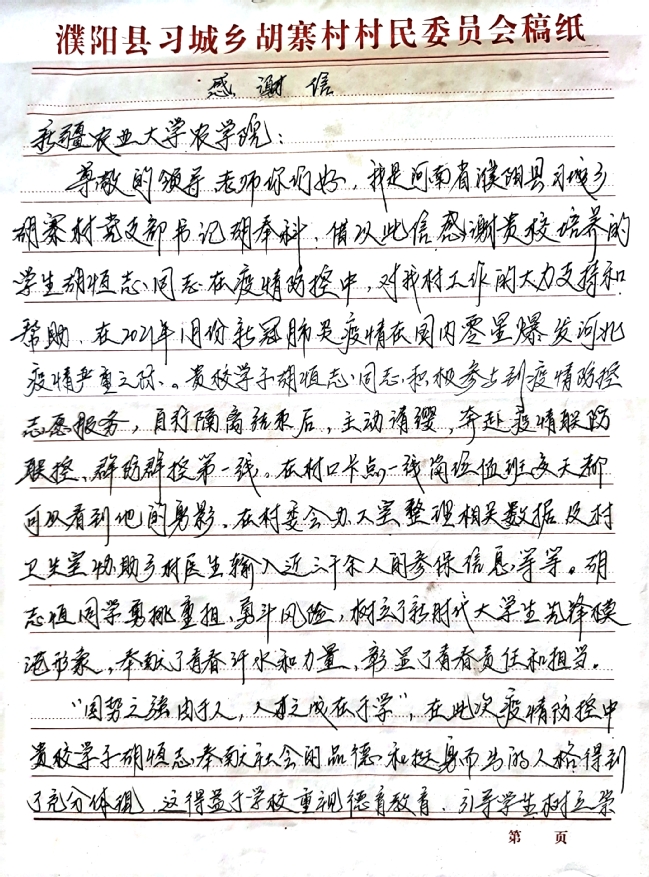 濮阳县习城乡胡寨村村民委员会稿纸
感谢信
新疆农业大学农学院：
尊敬的领导老师你们好，我是河南省濮阳县习城乡
胡寨村党支部书记胡奉科，借以此信感谢贵校培养的
学生胡恒志同志在疫情防控中，对我村工作的大力支持和
帮助。在2021年1月份新冠肺炎疫情在国内零星爆发河北
疫情严重之际。贵校学子胡恒志同志积极参与到疫情防控
志愿服务，自行隔离结束后，主动请缨，奔赴疫情联防
联控、群防群控第一线。在村口卡点一线岗位值班每天都
可以看到他的身影，在村委会办公室整理相关数据及村
卫生室协助乡村医生输入近三千余人的参保信息等等。胡
志恒同学勇挑重担，勇斗风险，树立了新时代大学生先锋模
范形象，奉献了青春汗水和力量，彰显了青春责任和担当。
“国势之强由于人，人材之成在于学”，在此次疫情防控中
贵校学子胡恒志奉献社会的品德和挺身而出的人格得到
了充分体现，这得益于学校重视德育教育，引导学生树立崇
第 页